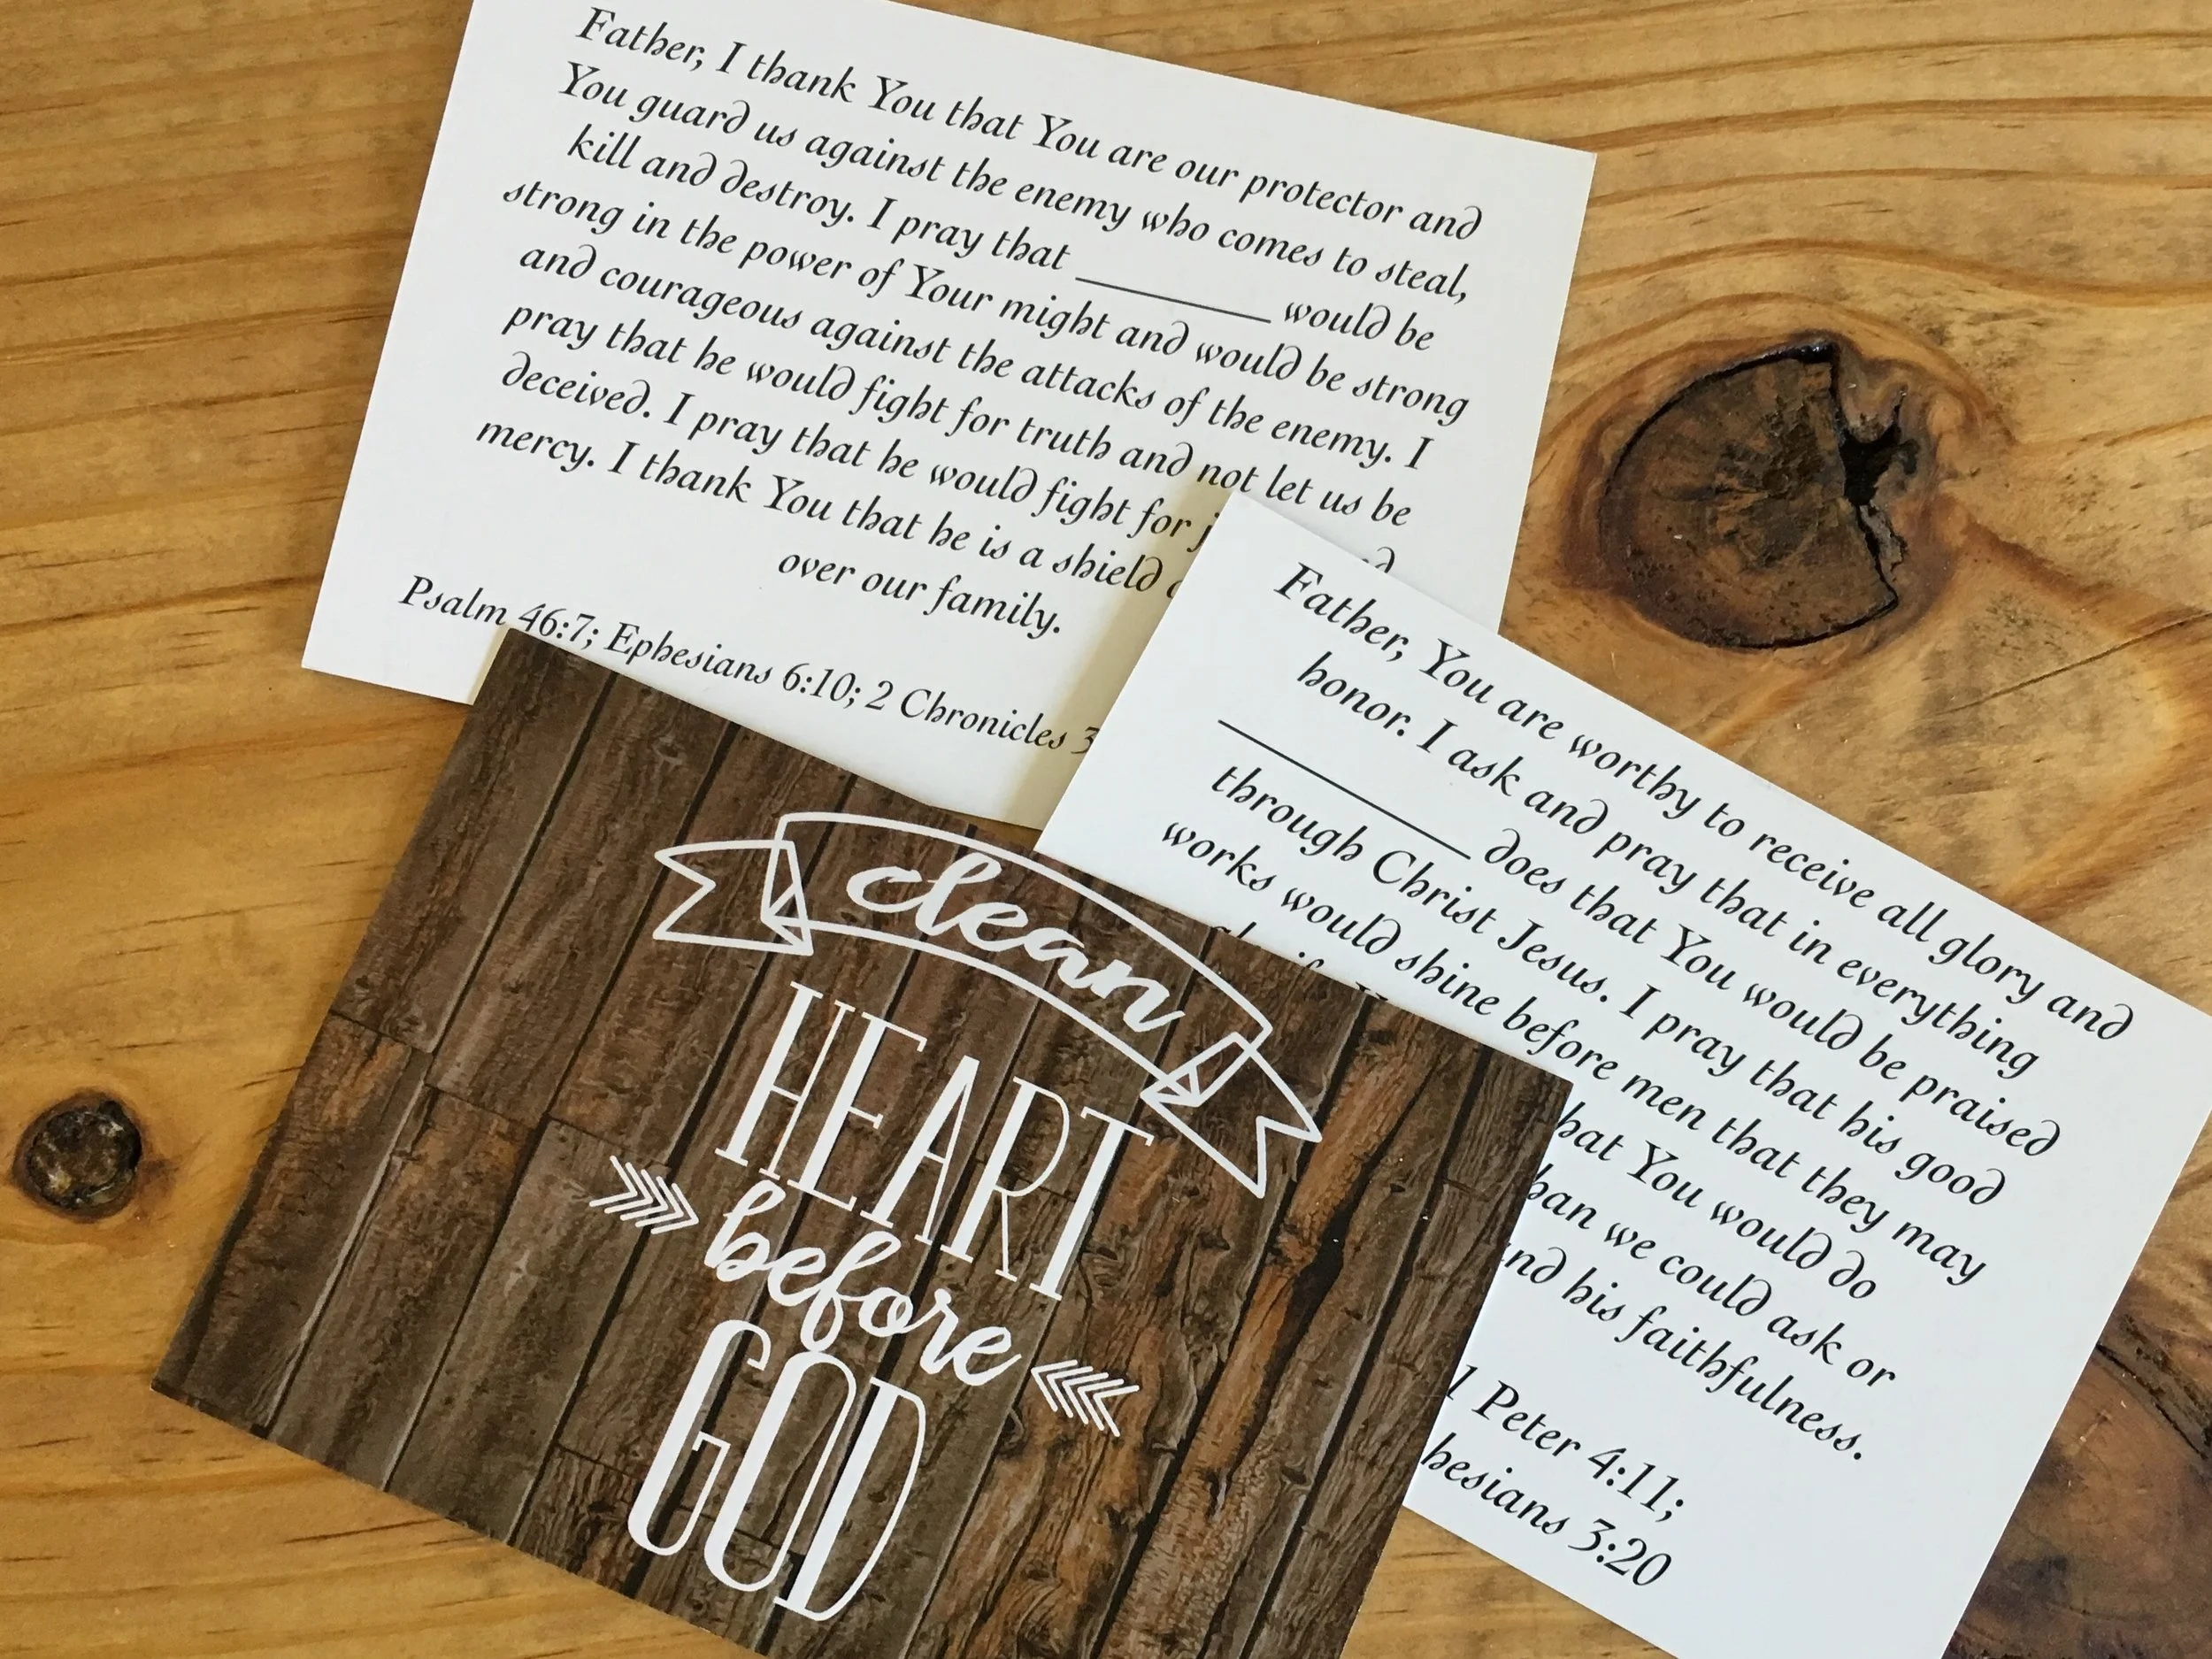 Father, I thank You that You are our protector and
You guard us against the enemy who comes to steal,
kill and destroy. I pray that __________ would be
strong in the power of Your might and would be strong
and courageous against the attacks of the enemy. I
pray that he would fight for truth and not let us be
deceived. I pray that he would fight for
mercy. I thank You that he is a shield
over our family.
Psalm 46:7; Ephesians 6:10; 2 Chronicles 3
Father, You are worthy to receive all glory and
honor. I ask and pray that in everything
__________ does that You would be praised
through Christ Jesus. I pray that his good
works would shine before men that they may
hat You would do
han we could ask or
nd his faithfulness.
1 Peter 4:11;
hesians 3:20
clean
HEART
before
GOD